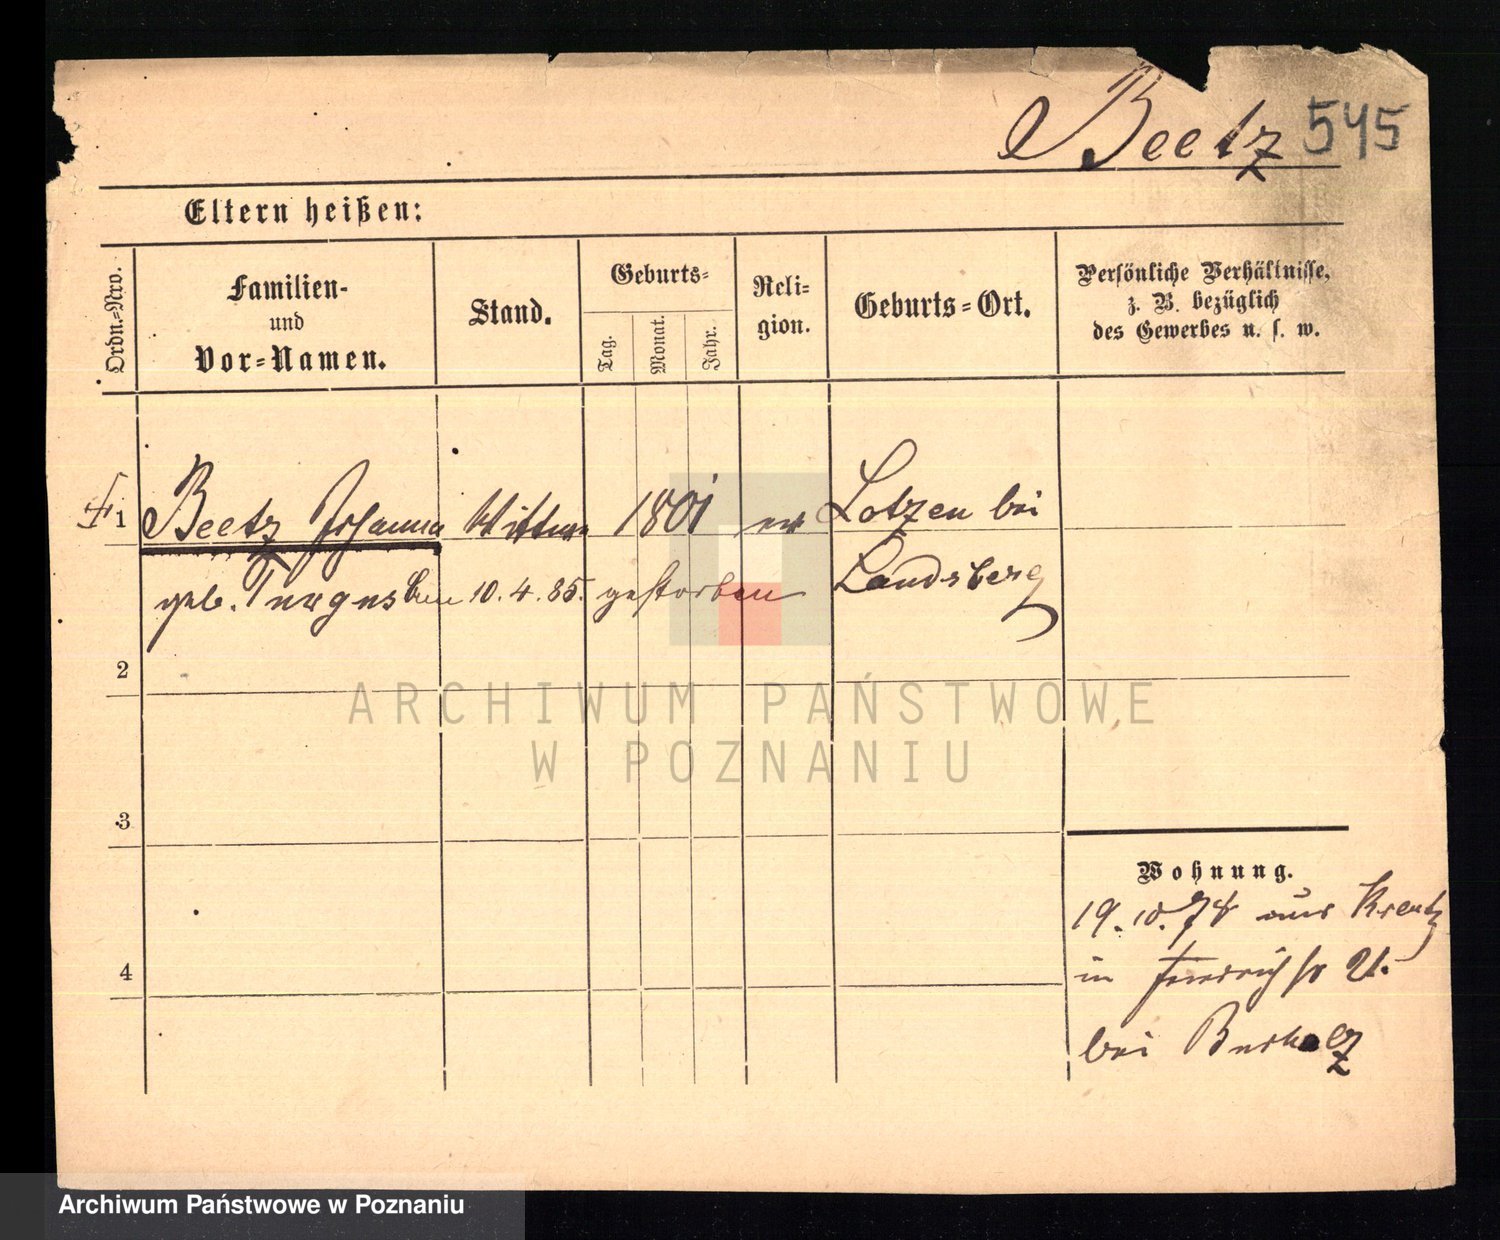 Beetz 545
Eltern heißen:
Ordn.=Nro.
Familien-
und
Vor=Namen.
Stand.
Geburts=
Tag.
Monat.
Jahr.
Reli=
gion.
Geburts=Ort.
Persönliche Verhältnisse,
z. B. bezüglich
des Gewerbes u. s. w.
1 Beetz Johanna Wittwe 1801 ev Lotzen bei
geb. 10.4.85. gestorben Landsberg
2
3
4
Wohnung.
19.10.78 aus Kreutz
in
bei
ARCHIWUM PAŃSTWOWE
W POZNANIU
Archiwum Państwowe w Poznaniu